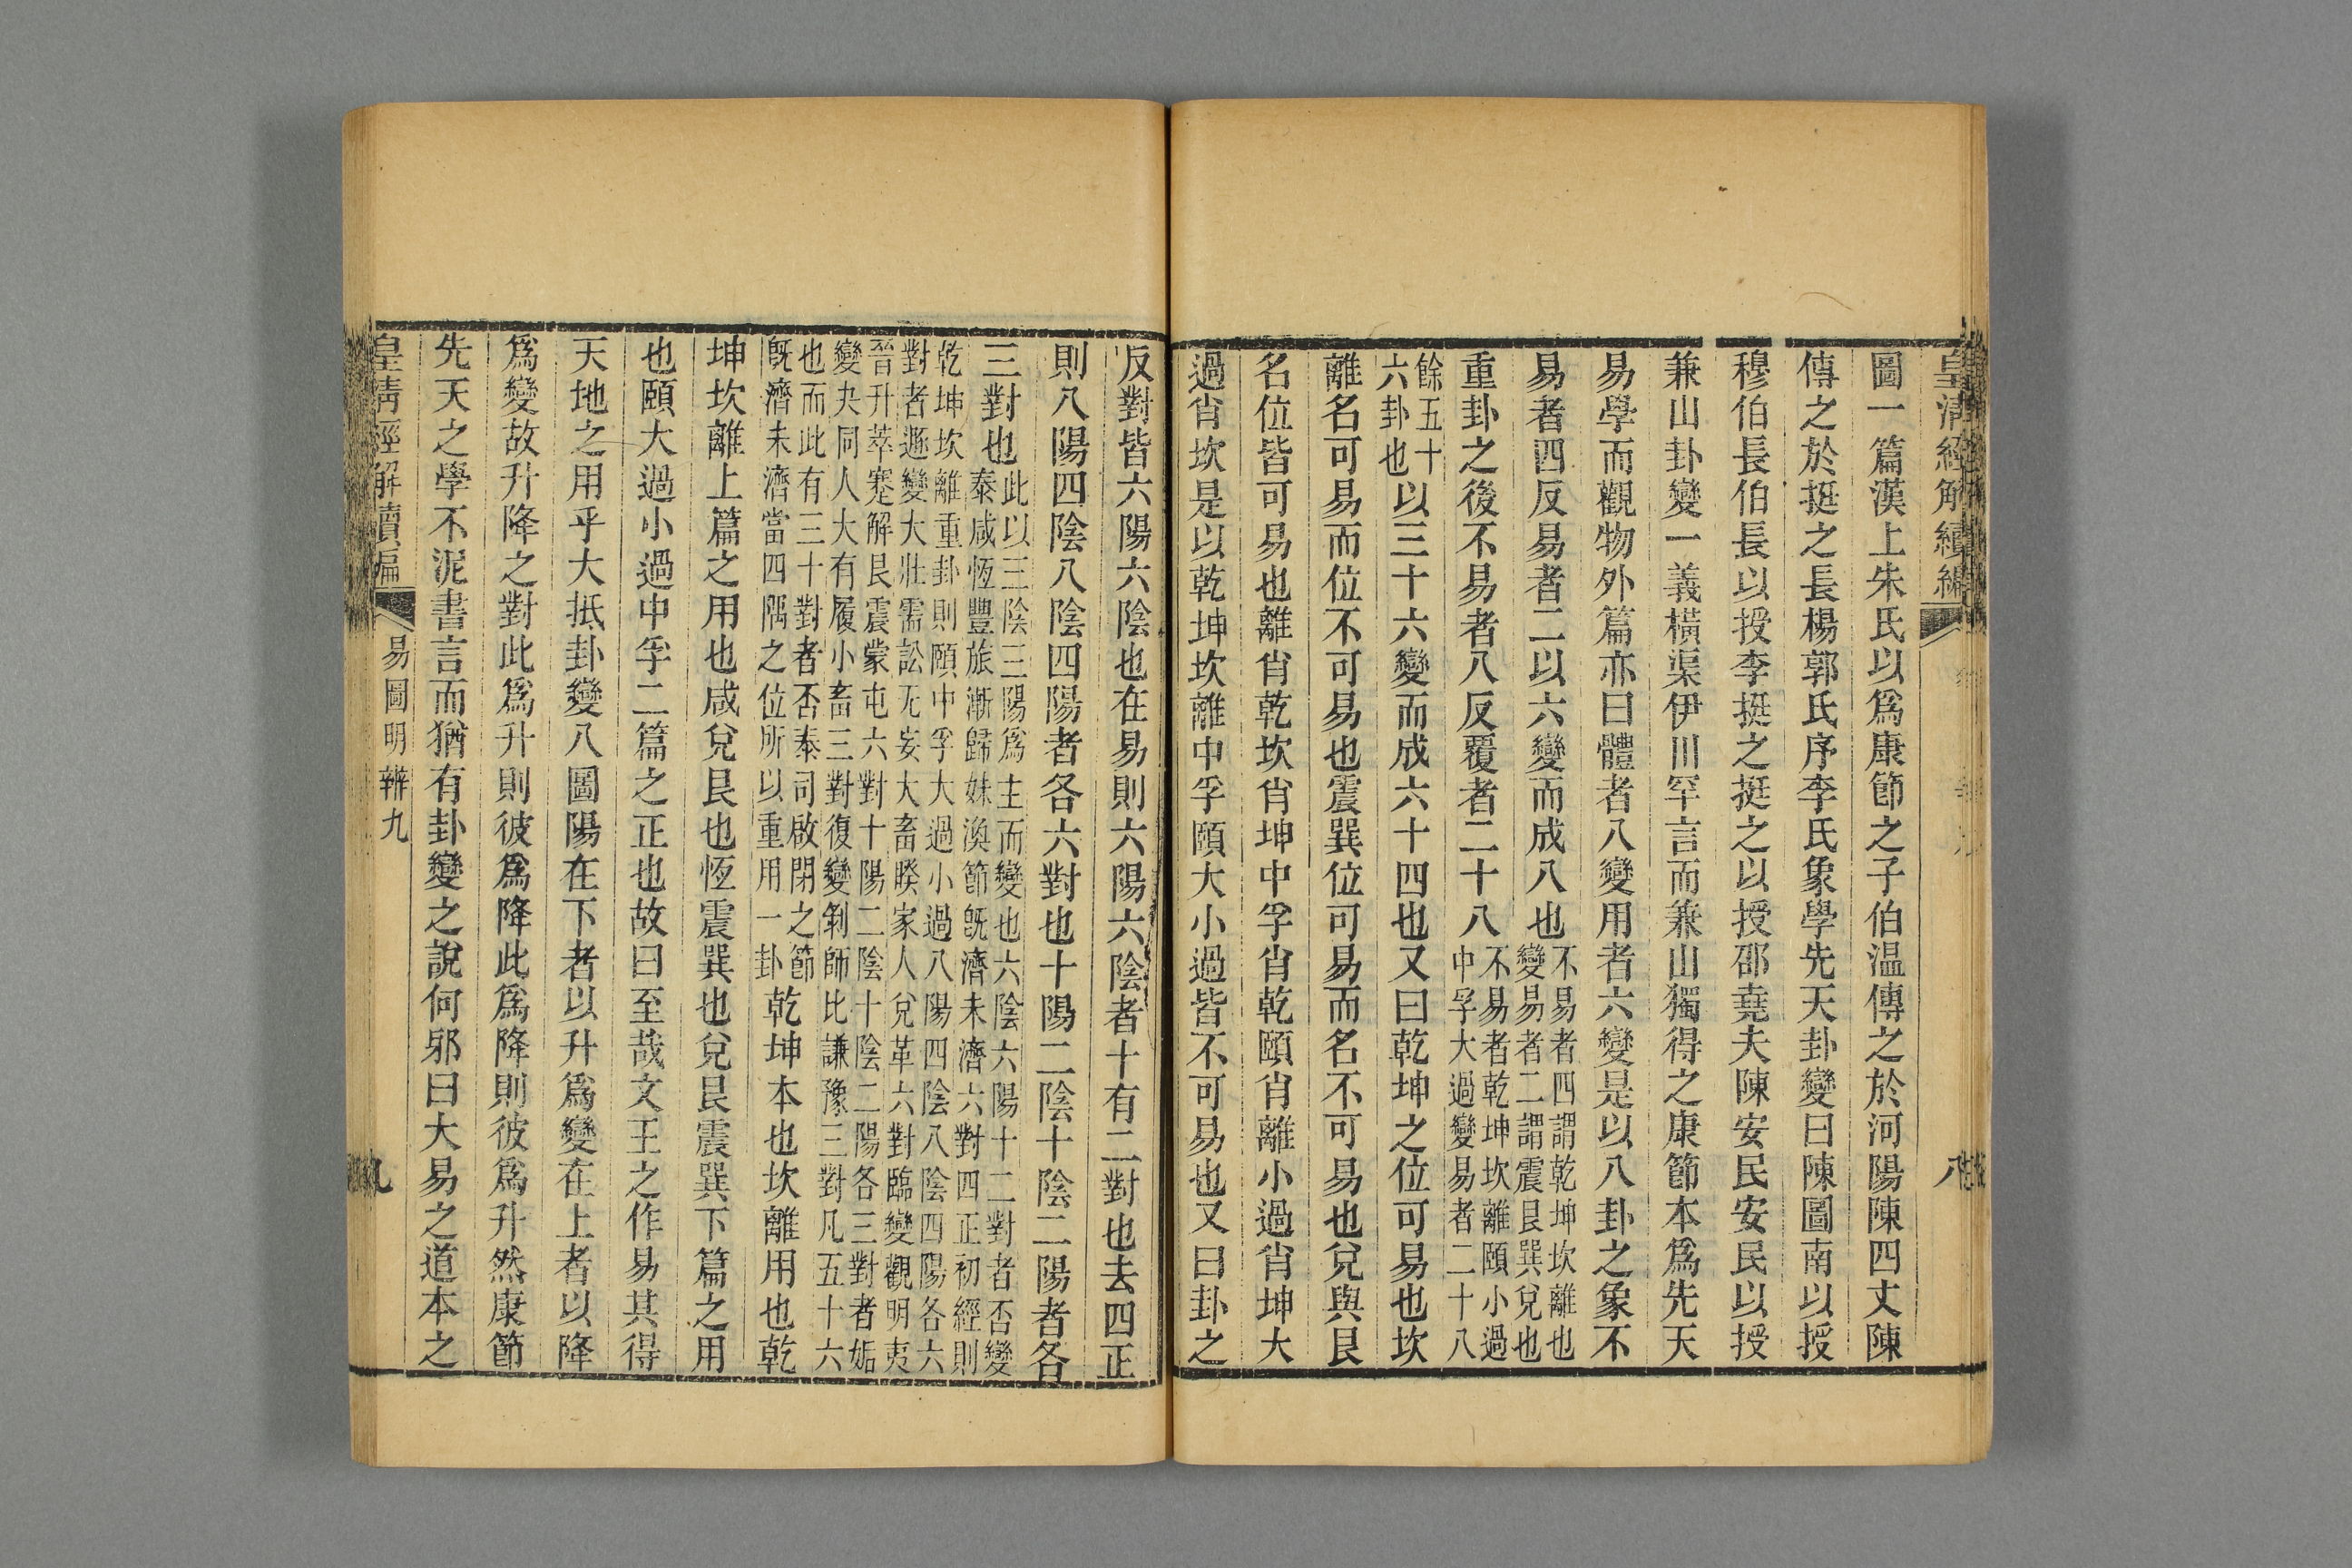 皇清經解續編
八
圖一篇漢上朱氏以爲康節之子伯温傳之於河陽陳四丈陳
傳之於挺之長楊郭氏序李氏象學先天卦變曰陳圖南以授
穆伯長伯長以授李挺之挺之以授邵堯夫陳安民安民以授
兼山卦變一義橫渠伊川罕言而兼山獨得之康節本爲先天
易學而觀物外篇亦曰體者八變用者六變是以八卦之象不
易者四反易者二以六變而成八也不易者四謂乾坤坎離也變易者二謂震艮巽兌也
重卦之後不易者八反覆者二十八不易者乾坤坎離頤小過中孚大過變易者二十八
餘五十六卦也以三十六變而成六十四也又曰乾坤之位可易也坎
離名可易而位不可易也震巽位可易而名不可易也兌與艮
名位皆可易也離肖乾坎肖坤中孚肖乾頤肖離小過肖坤大
過肖坎是以乾坤坎離中孚頤大小過皆不可易也又曰卦之
反對皆六陽六陰也在易則六陽六陰者十有二對也去四正
則八陽四陰八陰四陽者各六對也十陽二陰十陰二陽者各
三對也此以三陰三陽爲主而變也六陰六陽十二對者否變泰咸恆豐旅漸歸妹渙節旣濟未濟六對四正初經則
乾坤坎離重卦則頤中孚大過小過八陽四陰八陰四陽各六對者遯變大壯需訟无妄大畜睽家人兌革六對臨變觀明夷
晉升萃蹇解艮震蒙屯六對十陽二陰十陰二陽各三對者姤變夬同人大有履小畜三對復變剝師比謙豫三對凡五十六
也而此有三十對者否泰司啟閉之節旣濟未濟當四隅之位所以重用一卦乾坤本也坎離用也乾
坤坎離上篇之用也咸兌艮也恆震巽也兌艮震巽下篇之用
也頤大過小過中孚二篇之正也故曰至哉文王之作易其得
天地之用乎大抵卦變八圖陽在下者以升爲變在上者以降
爲變故升降之對此爲升則彼爲降此爲降則彼爲升然康節
先天之學不泥書言而猶有卦變之說何邪曰大易之道本之
皇清經解續編
易圖明辨九
九